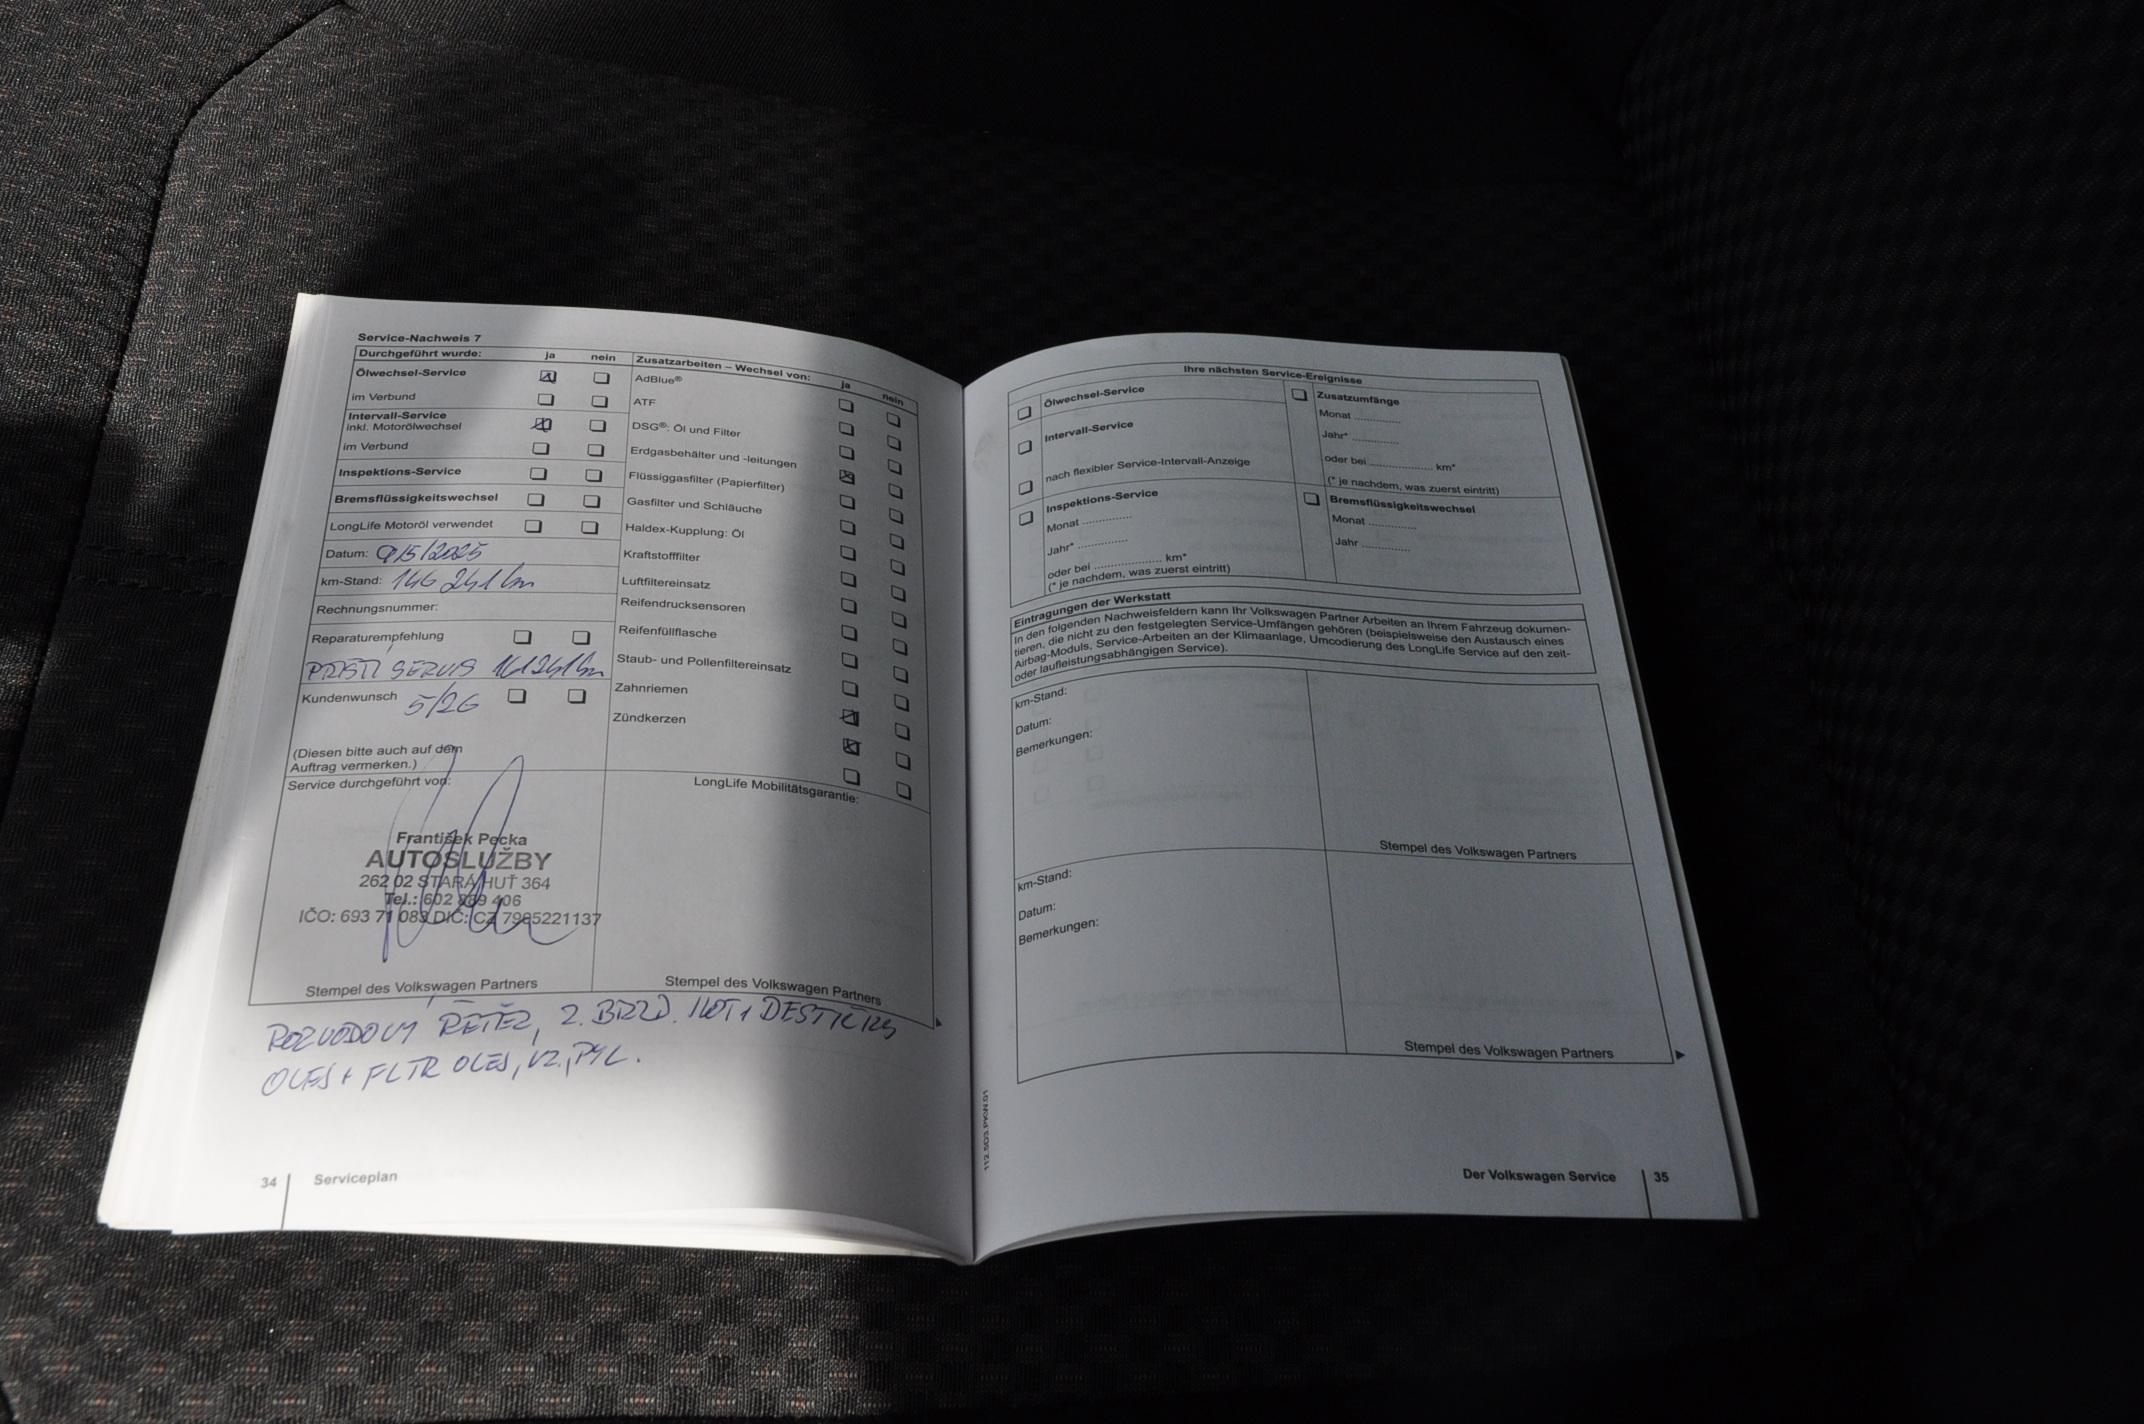 Service-Nachweis 7
Durchgeführt wurde: ja nein
Ölwechsel-Service
im Verbund
Intervall-Service
inkl. Motorölwechsel
im Verbund
Inspektions-Service
Bremsflüssigkeitswechsel
LongLife Motoröl verwendet
Datum: 9/5/2025
km-Stand: 146 241 km
Rechnungsnummer:
Reparaturempfehlung
PŘÍŠTÍ SERVIS 161241 km
Kundenwunsch 5/26
(Diesen bitte auch auf dem
Auftrag vermerken.)
Service durchgeführt von:
František Pecka
AUTOSLUŽBY
262 02 STARÁ HUŤ 364
Tel.: 602 889 406
IČO: 693 71 083 DIČ: CZ 7905221137
Stempel des Volkswagen Partners
Zusatzarbeiten – Wechsel von: ja nein
AdBlue®
ATF
DSG®: Öl und Filter
Erdgasbehälter und -leitungen
Flüssiggasfilter (Papierfilter)
Gasfilter und Schläuche
Haldex-Kupplung: Öl
Kraftstofffilter
Luftfiltereinsatz
Reifendrucksensoren
Reifenfüllflasche
Staub- und Pollenfiltereinsatz
Zahnriemen
Zündkerzen
LongLife Mobilitätsgarantie:
Stempel des Volkswagen Partners
ROZVODOVÝ ŘETĚZ, Z. BRZD. KOT+DESTIČKY
OLEJ + FILTR OLEJ, VZ., PYL.
34 Serviceplan
Ihre nächsten Service-Ereignisse
Ölwechsel-Service
Intervall-Service
nach flexibler Service-Intervall-Anzeige
Inspektions-Service
Monat ..............
Jahr* ..............
oder bei ................... km*
(* je nachdem, was zuerst eintritt)
Zusatzumfänge
Monat .............
Jahr* .............
oder bei .................. km*
(* je nachdem, was zuerst eintritt)
Bremsflüssigkeitswechsel
Monat .............
Jahr .............
Eintragungen der Werkstatt
In den folgenden Nachweisfeldern kann Ihr Volkswagen Partner Arbeiten an Ihrem Fahrzeug dokumen-
tieren, die nicht zu den festgelegten Service-Umfängen gehören (beispielsweise den Austausch eines
Airbag-Moduls, Service-Arbeiten an der Klimaanlage, Umcodierung des LongLife Service auf den zeit-
oder laufleistungsabhängigen Service).
km-Stand:
Datum:
Bemerkungen:
Stempel des Volkswagen Partners
km-Stand:
Datum:
Bemerkungen:
Stempel des Volkswagen Partners
112.5D3.PKW.01
Der Volkswagen Service 35